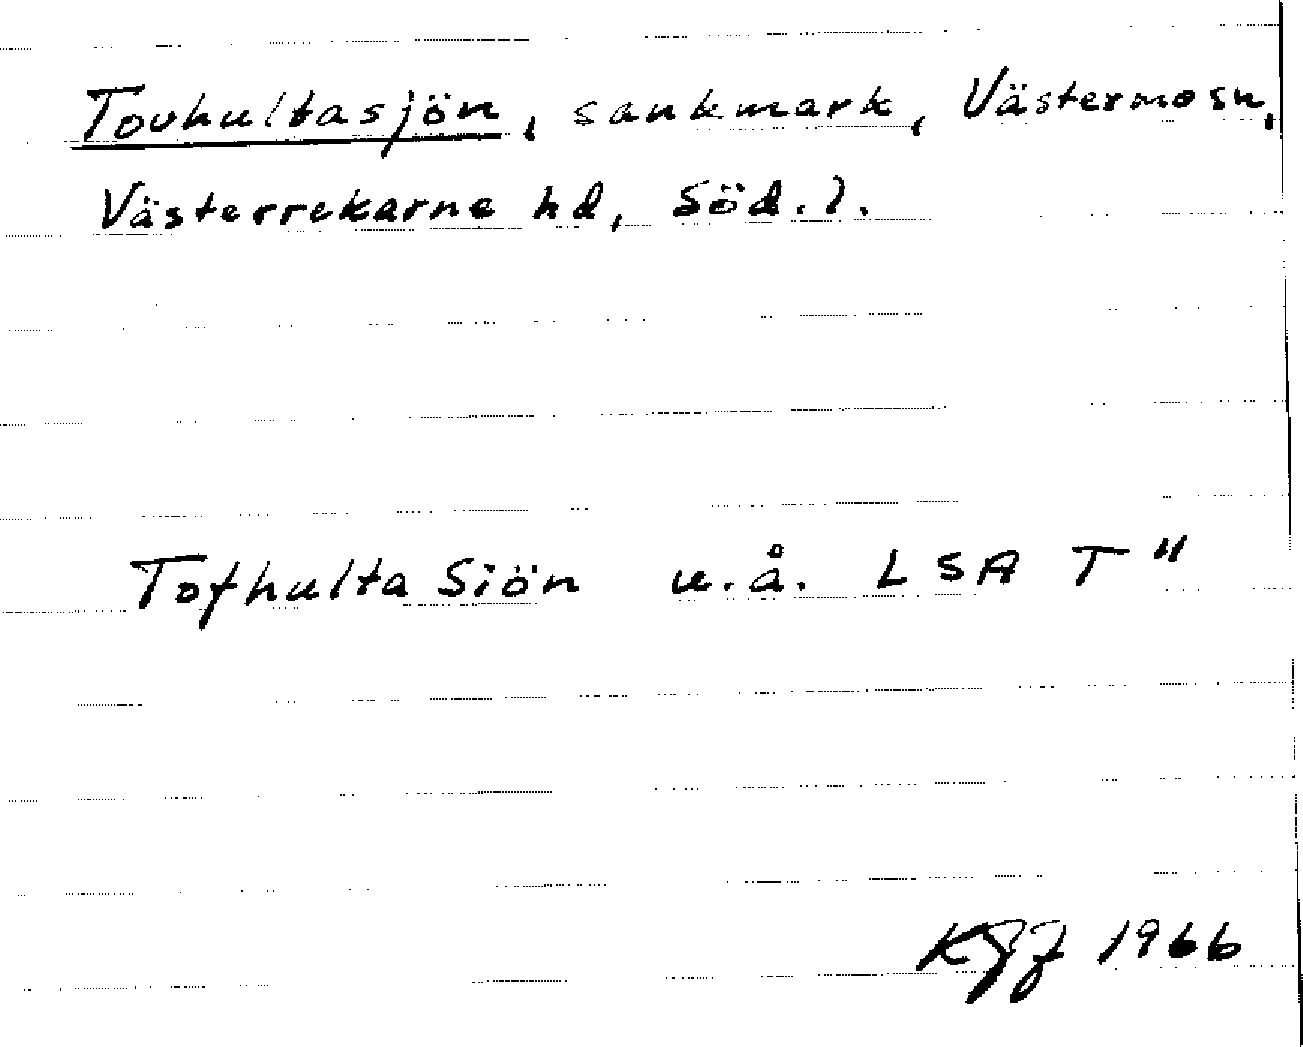 Tovhultasjön, sankmark, Västermo sn,
Västerrekarne hd, Söd. l.
Tofhulta Siön u.å. LSA T"
1966